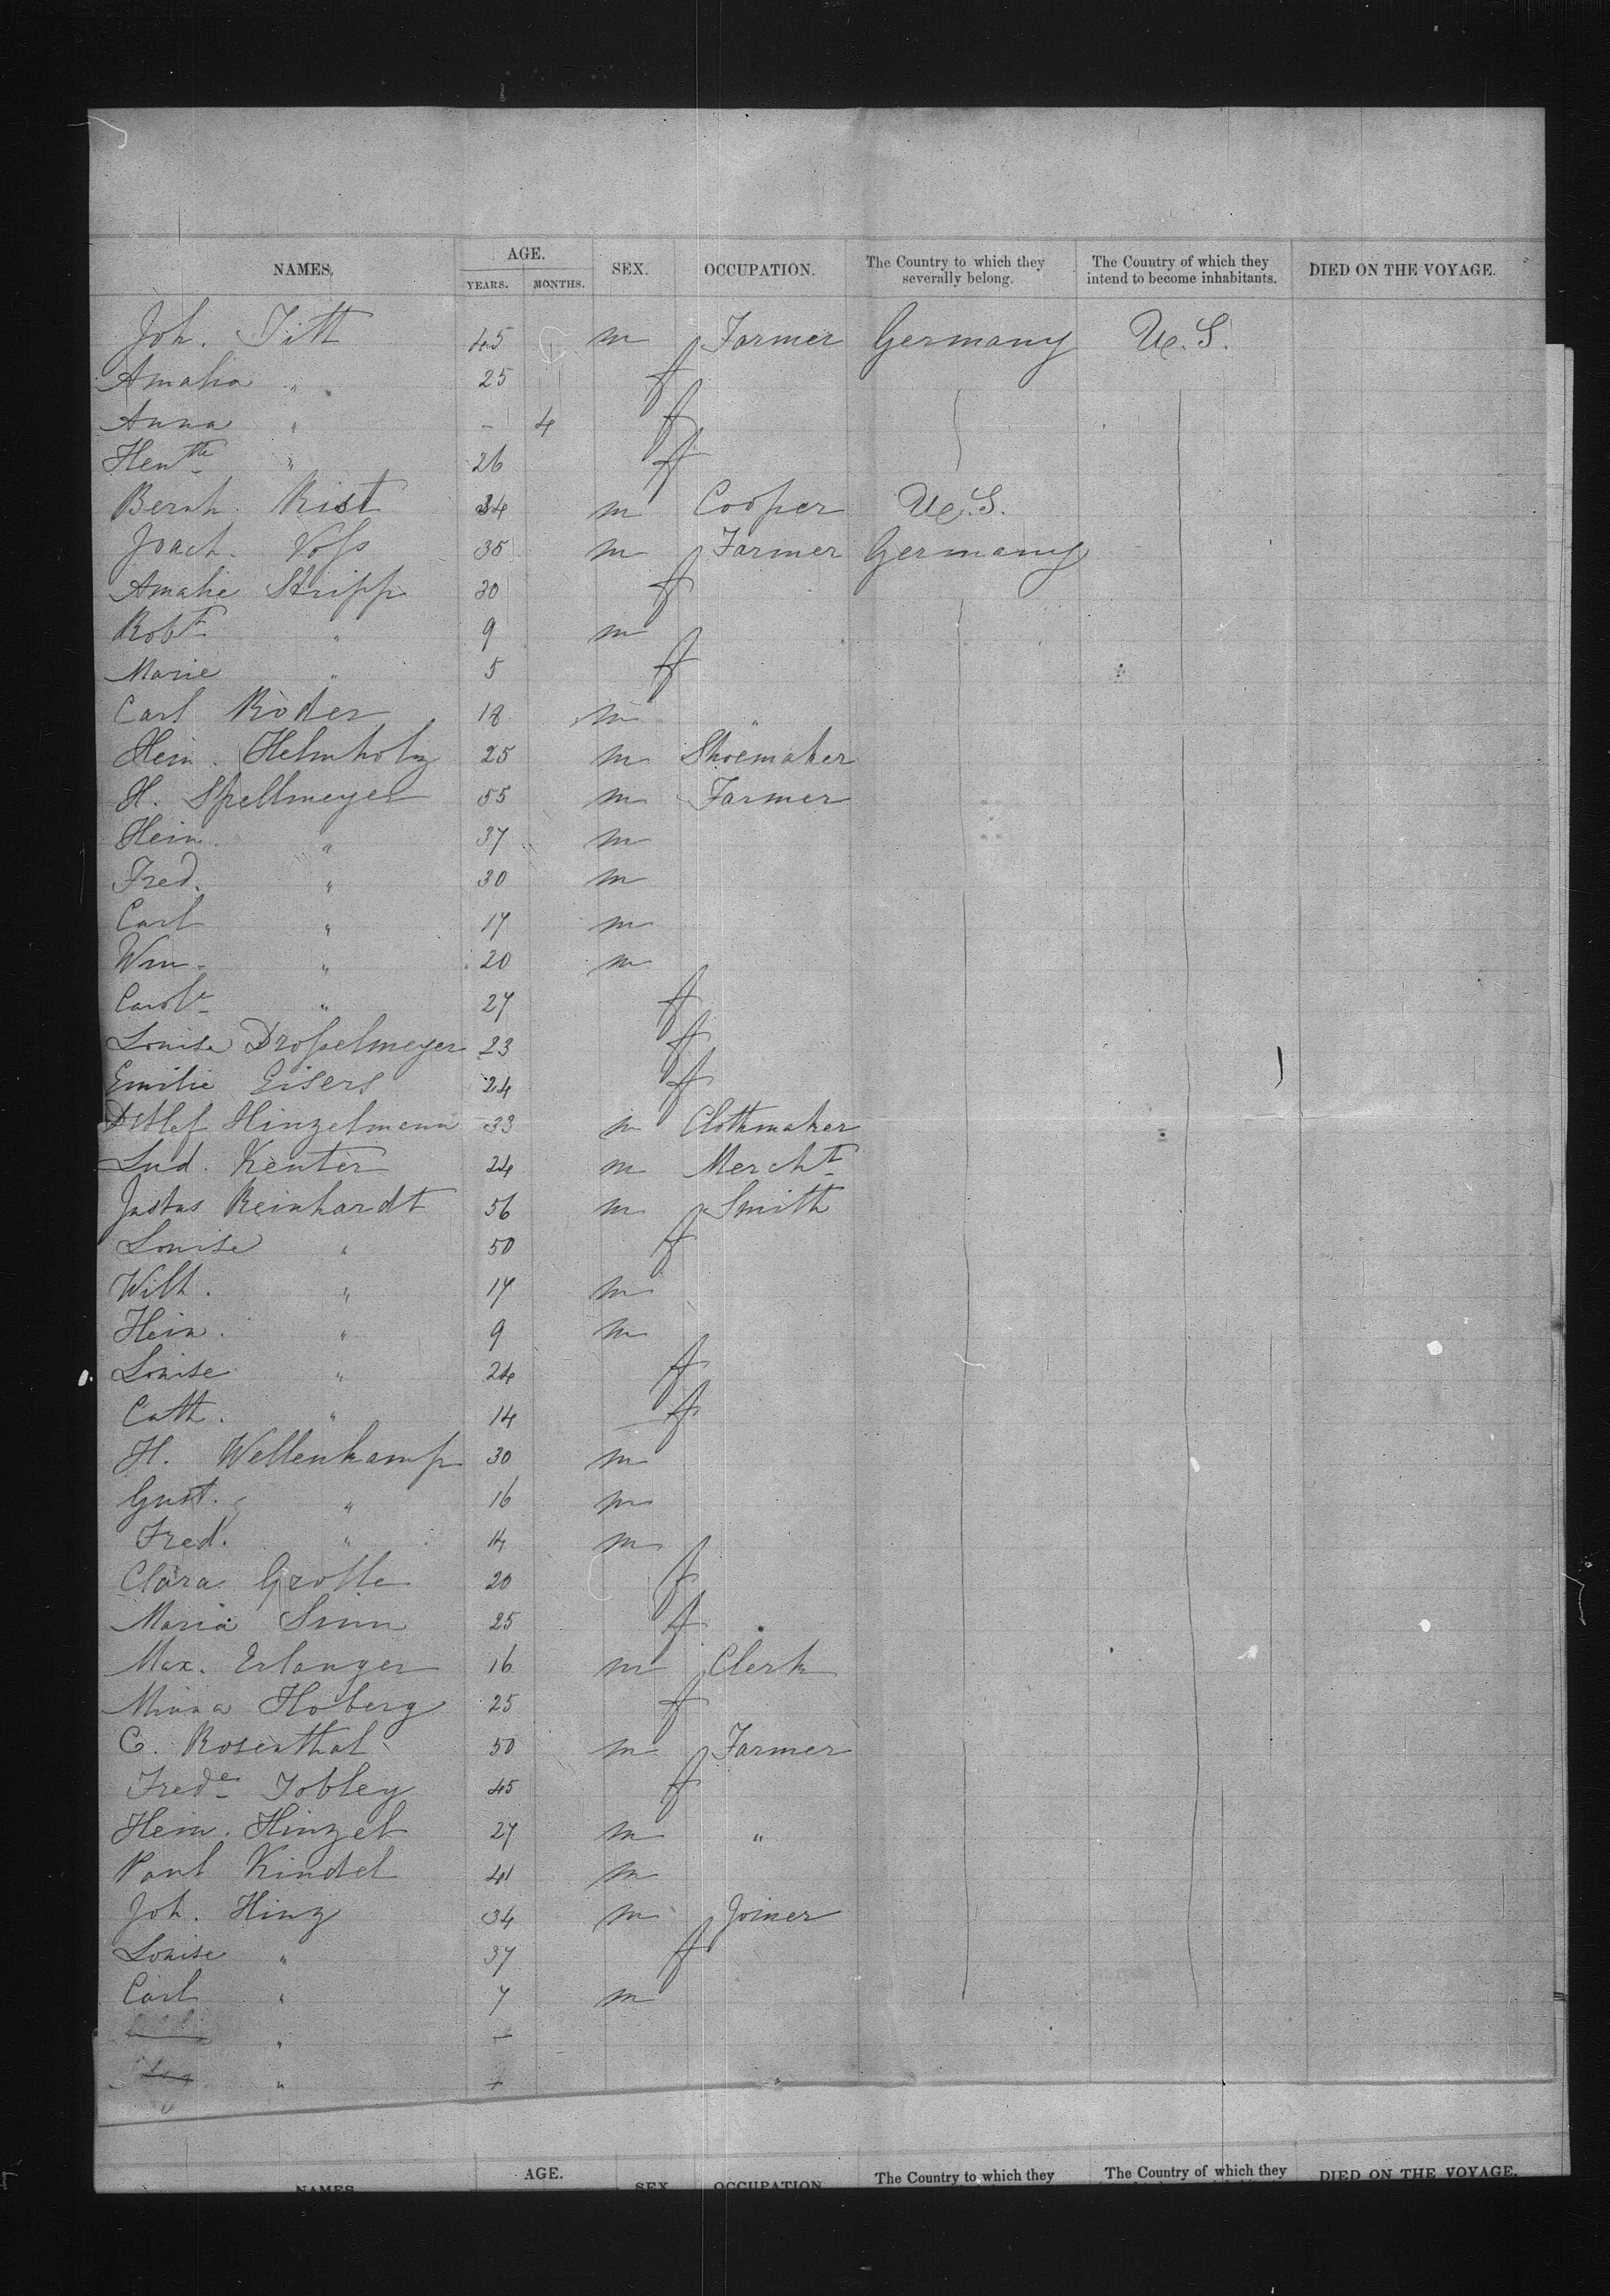 NAMES. AGE. YEARS. MONTHS. SEX. OCCUPATION. The Country to which they severally belong. The Country of which they intend to become inhabitants. DIED ON THE VOYAGE.
Joh. Titt 45 m Farmer Germany U.S.
Amalia " 25 f
Anna " - 4 f
Hentte " 26 f
Bernh. Rist 34 m Cooper U.S.
Joach. Voss 35 m Farmer Germany
Amalie Stripp 30 f
Robt " 9 m
Marie " 5 f
Carl Röder 18 m "
Hein. Helmholz 25 m Shoemaker
H. Spellmeyer 55 m Farmer
Hein. " 37 m
Fred. " 30 m
Carl " 17 m
Wm. " 20 m
Carole " 27 f
Louise Drosselmeyer 23 f
Emilie Eisers 24 f
Detlef Hinzelmann 33 m Clothmaker
Lud. Kenter 24 m Mercht
Justus Reinhardt 56 m Smith
Louise " 50 f
Wilh. " 17 m
Hein. " 9 m
Louise " 24 f
Cath. " 14 f
H. Wellenkamp 30 m
Gust. " 16 m
Fred. " 14 m
Clara Grolle 20 f
Maria Sinn 25 f
Max. Erlanger 16 m Clerk
Minna Hoberg 25 f
C. Rosenthal 50 m Farmer
Frede Tobley 45 f
Hein. Hinzel 27 m "
Paul Kindel 41 m
Joh. Hinz 34 m Joiner
Louise " 37 f
Carl " 7 m
"
"
NAMES AGE. SEX OCCUPATION The Country to which they The Country of which they DIED ON THE VOYAGE.